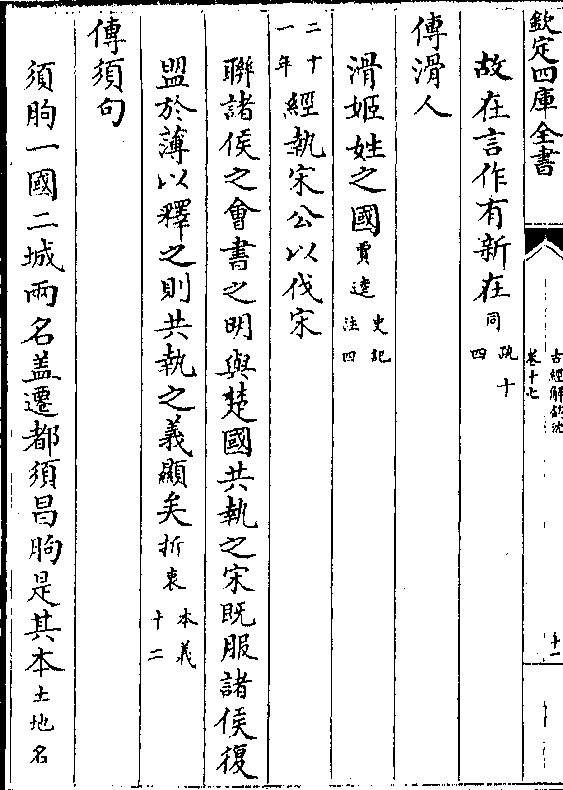 欽定四庫全書
古經解鉤沈
卷十七
十一
故在言作有新在同疏十四
傳滑人
滑姬姓之國賈逵史記注四
二十一年經執宋公以伐宋
聯諸侯之會書之明與楚國共執之宋既服諸侯復
盟於薄以釋之則共執之義顯矣折衷本義十二
傳須句
須朐一國二城兩名盖遷都須昌朐是其本土地名